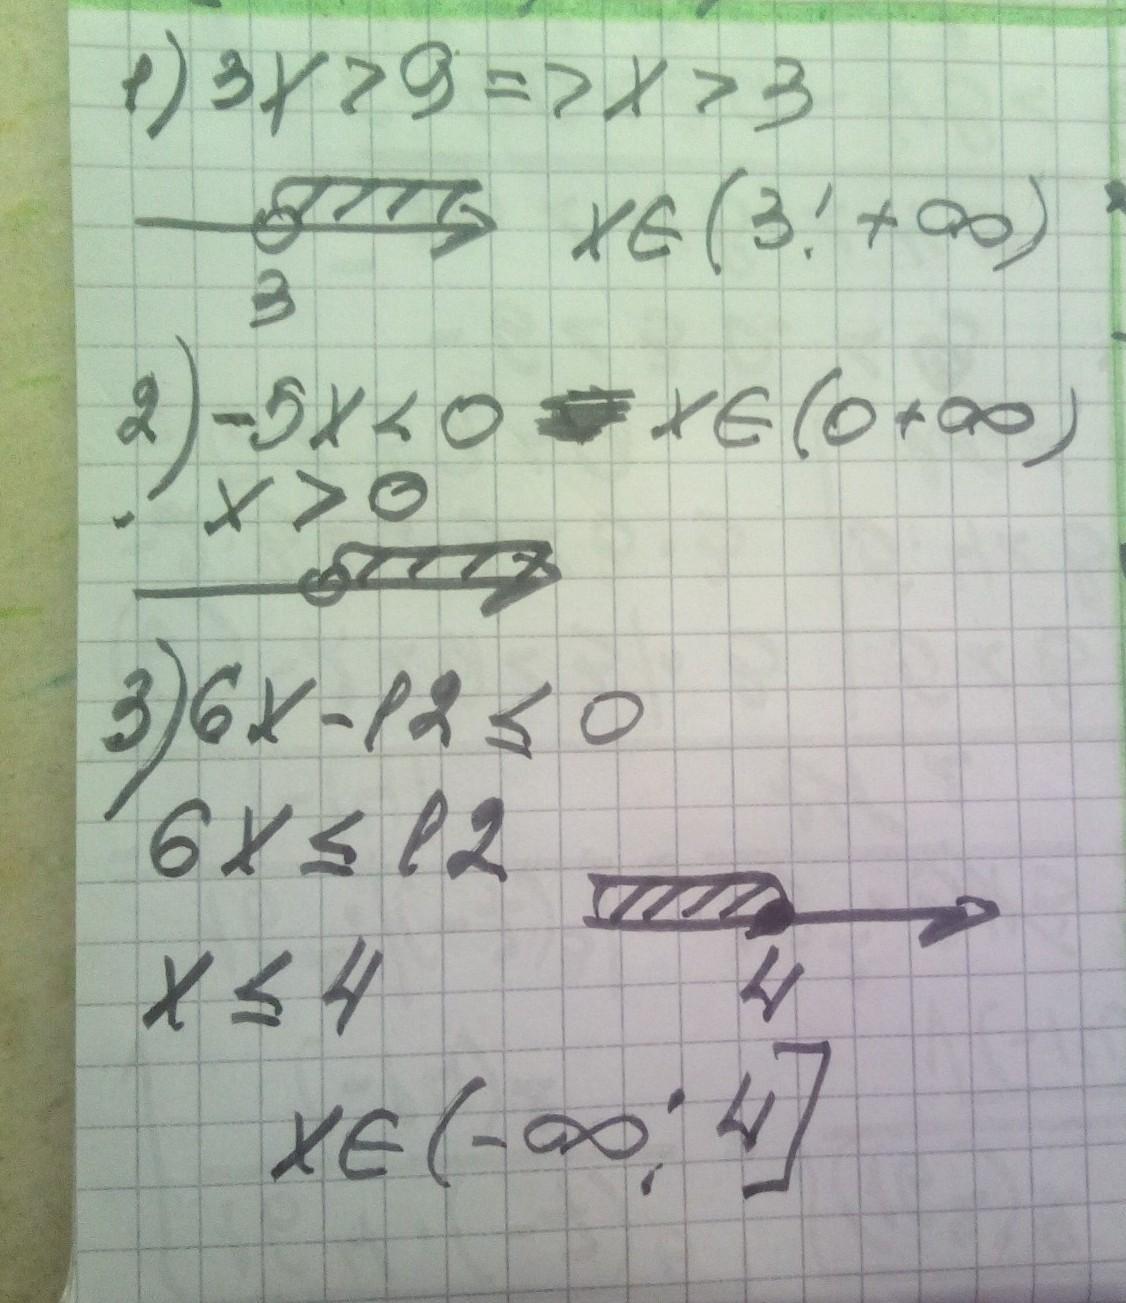 1) 3x > 9 => x > 3
3
x∈(3; +∞)
2) -5x < 0 x∈(0 +∞)
x > 0
3) 6x - 12 ≤ 0
6x ≤ 12
x ≤ 4
4
x∈(-∞; 4]